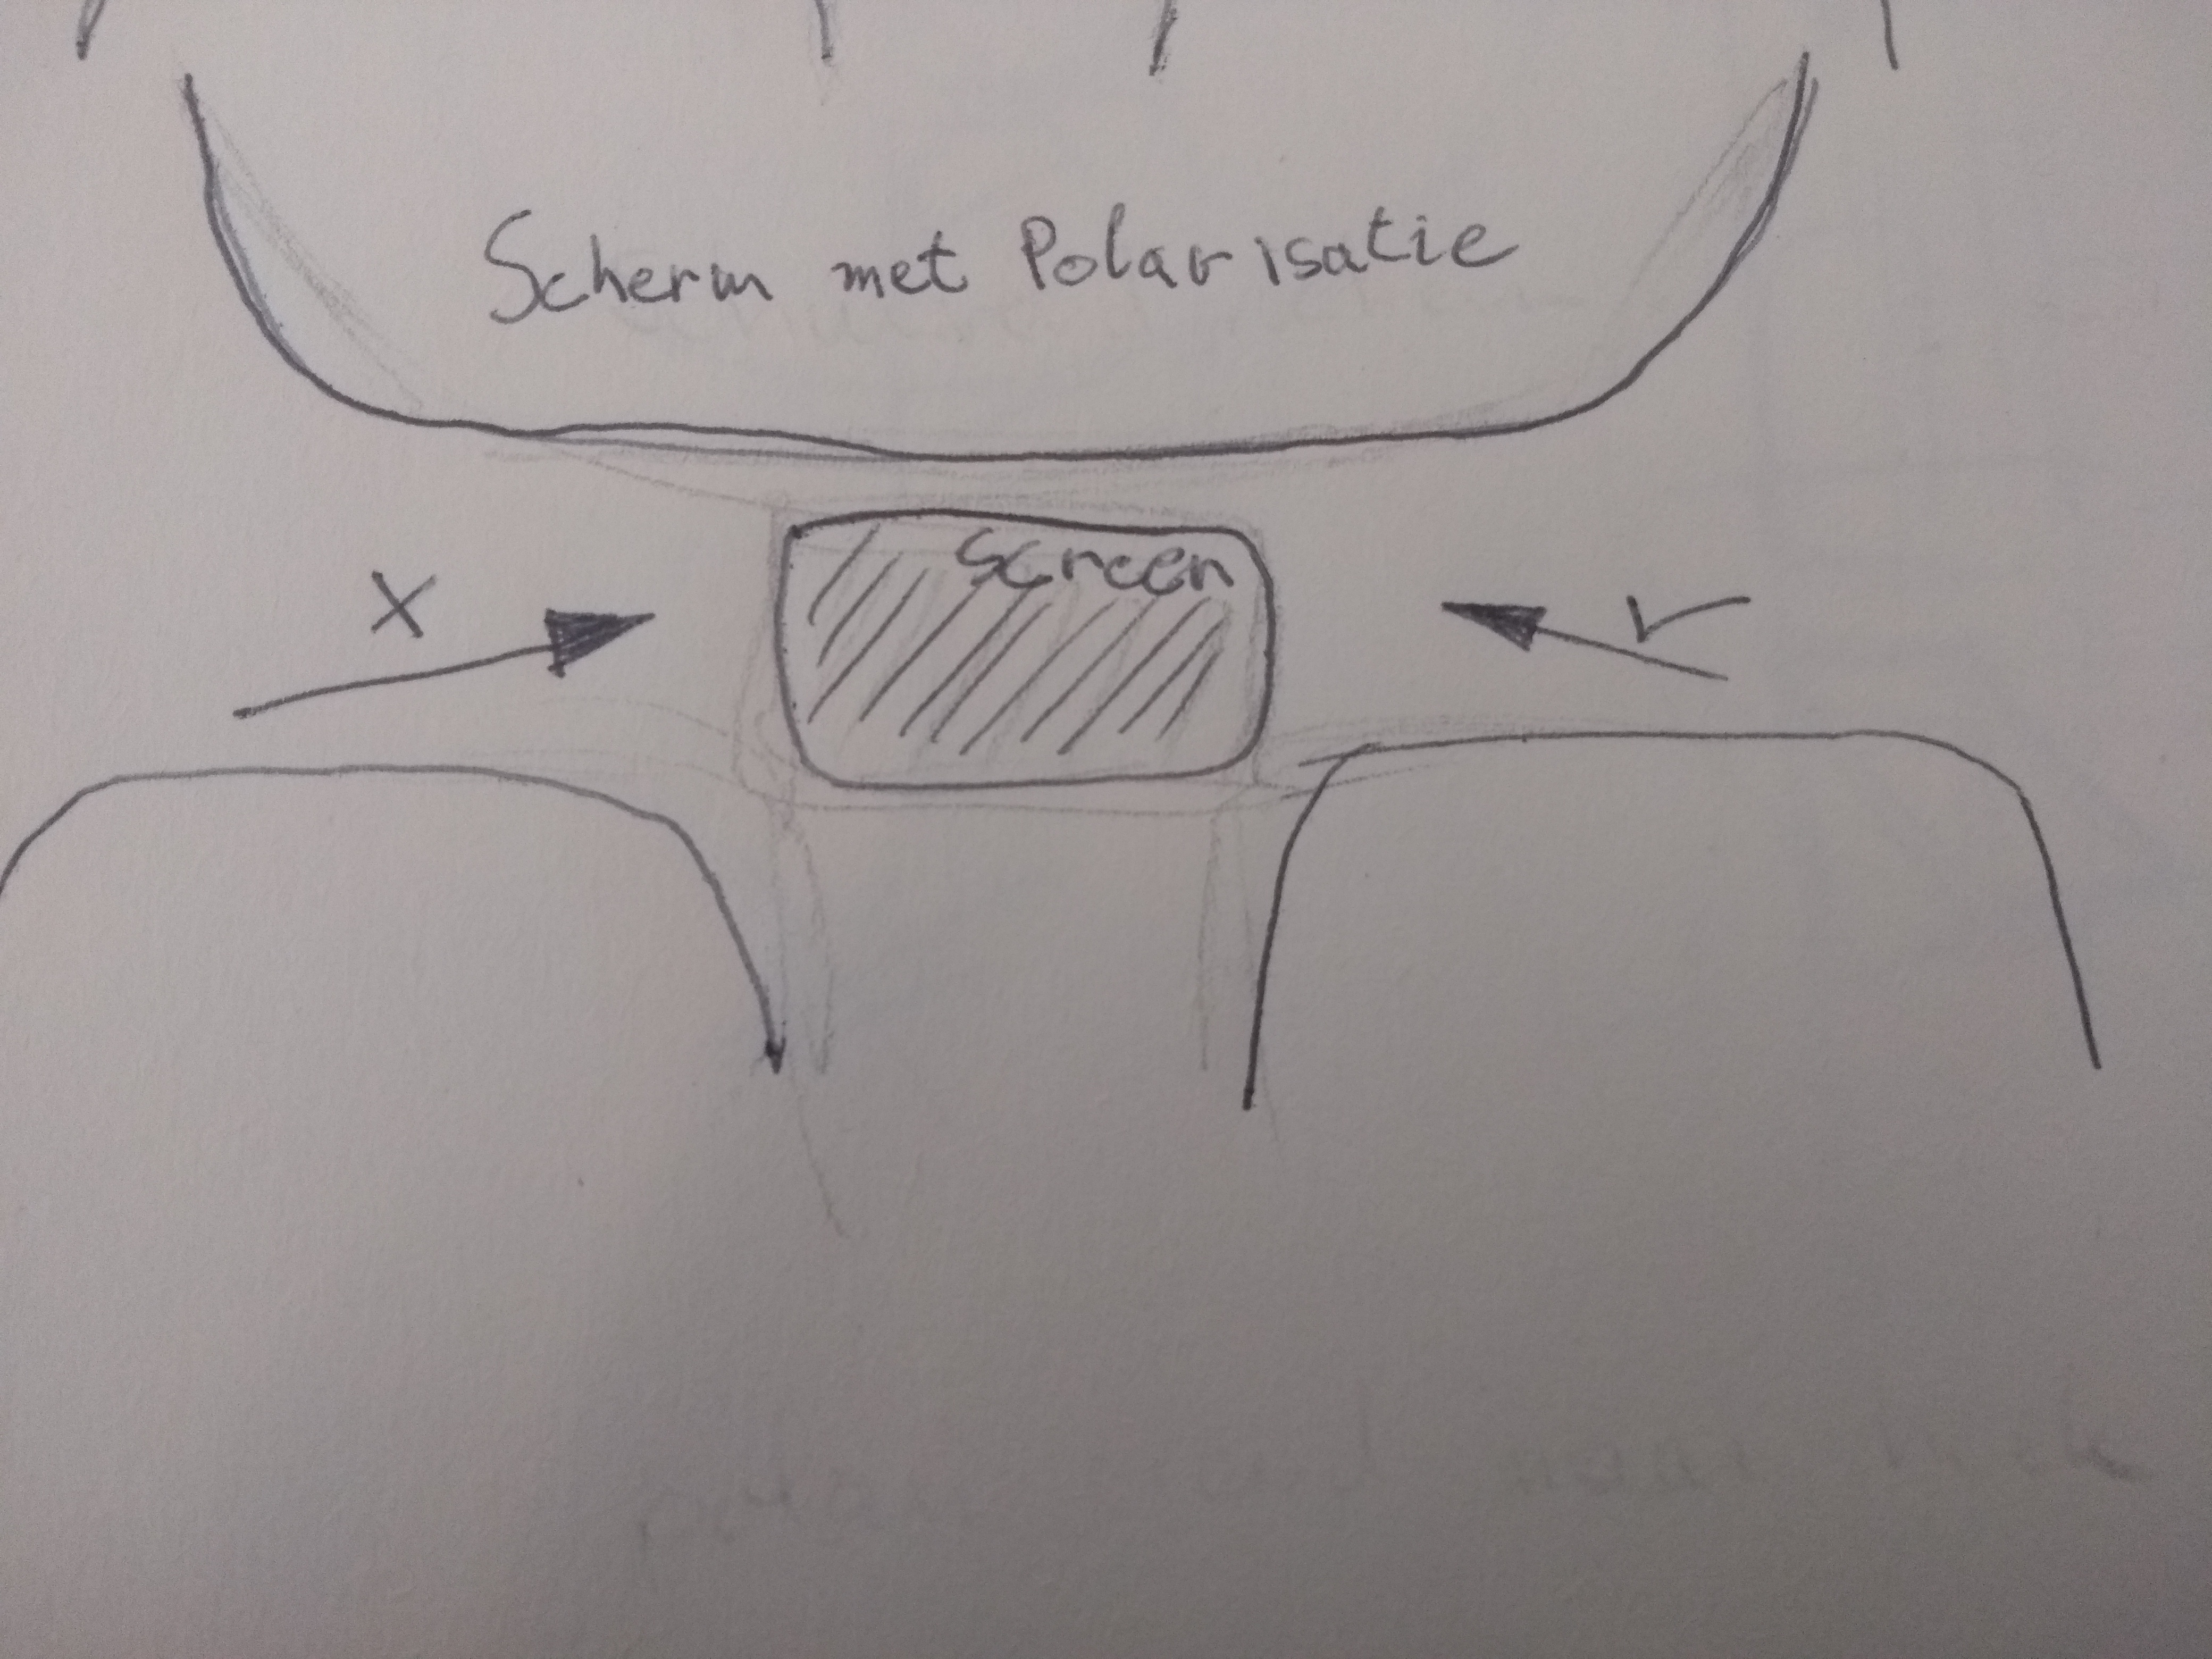 Scherm met Polarisatie
Screen
X
✓